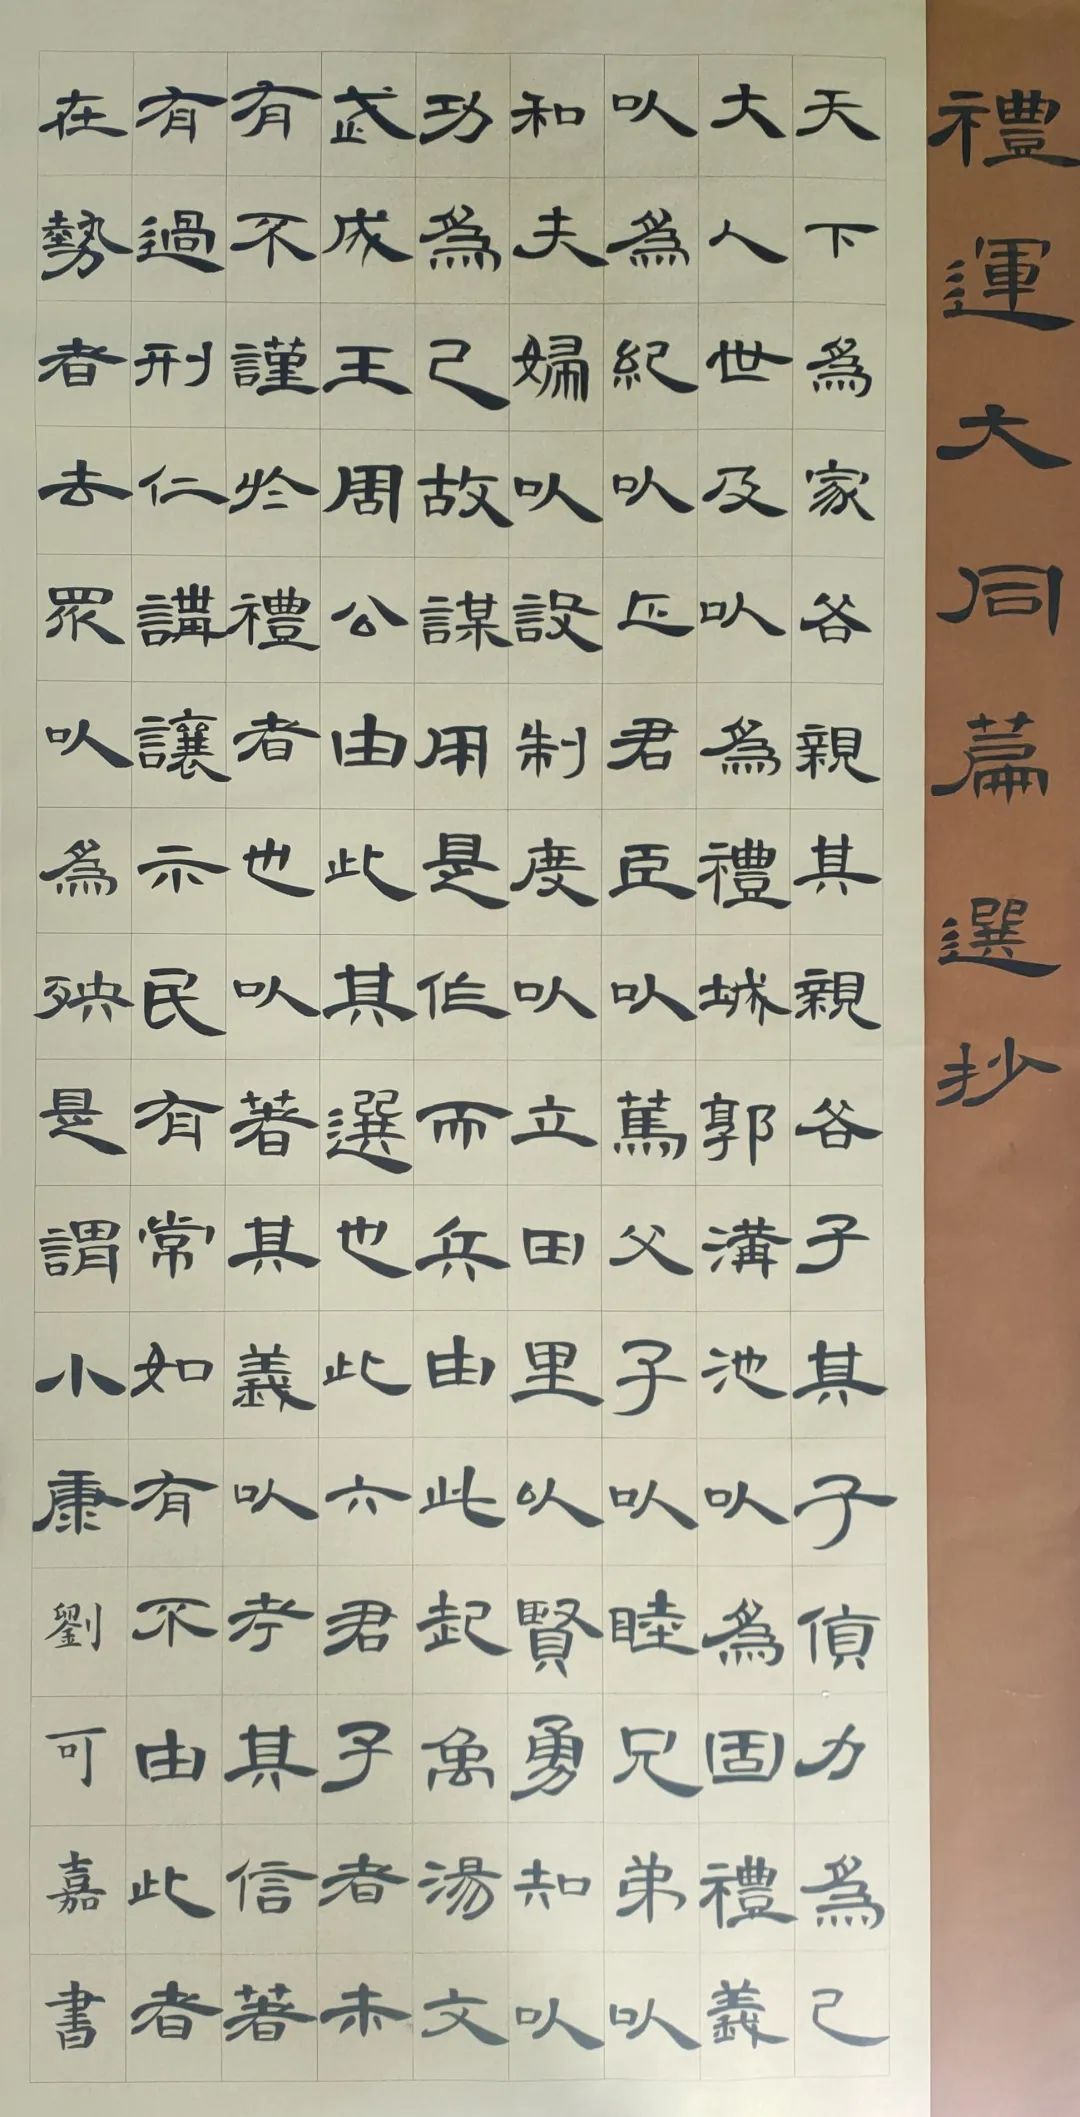 禮運大同篇選抄
天下爲家各親其親各子其子貨力爲己
大人世及以爲禮城郭溝池以爲固禮義
以爲紀以正君臣以篤父子以睦兄弟以
和夫婦以設制度以立田里以賢勇知以
功爲己故謀用是作而兵由此起禹湯文
武成王周公由此其選也此六君子者未
有不謹於禮者也以著其義以考其信著
有過刑仁講讓示民有常如有不由此者
在勢者去眾以爲殃是謂小康劉可嘉書